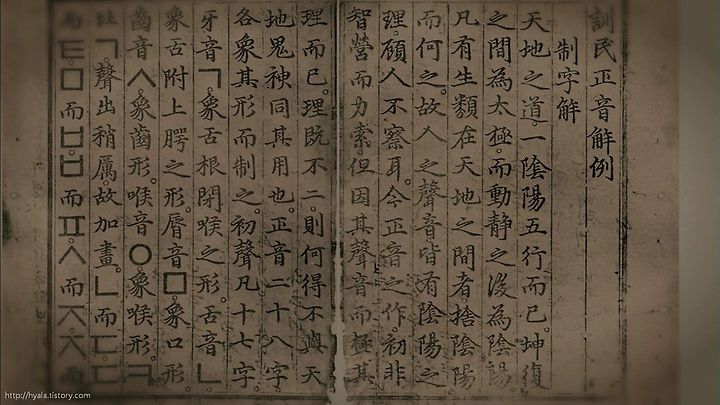 訓民正音解例
制字解
天地之道。一陰陽五行而已。坤復
之間為太極。而動靜之後為陰陽。
凡有生類在天地之間者。捨陰陽
而何之。故人之聲音。皆有陰陽之
理。顧人不察耳。今正音之作。初非
智營而力索。但因其聲音而極其
理而已。理既不二。則何得不與天
地鬼神同其用也。正音二十八字。
各象其形而制之。初聲凡十七字。
牙音ㄱ。象舌根閉喉之形。舌音ㄴ。
象舌附上腭之形。脣音ㅁ。象口形。
齒音ㅅ。象齒形。喉音ㅇ。象喉形。ㅋ
比ㄱ。聲出稍厲。故加畫。ㄴ而ㄷ。ㄷ
而ㅌ。ㅁ而ㅂ。ㅂ而ㅍ。ㅅ而ㅈ。ㅈ
http://hyala.tistory.com